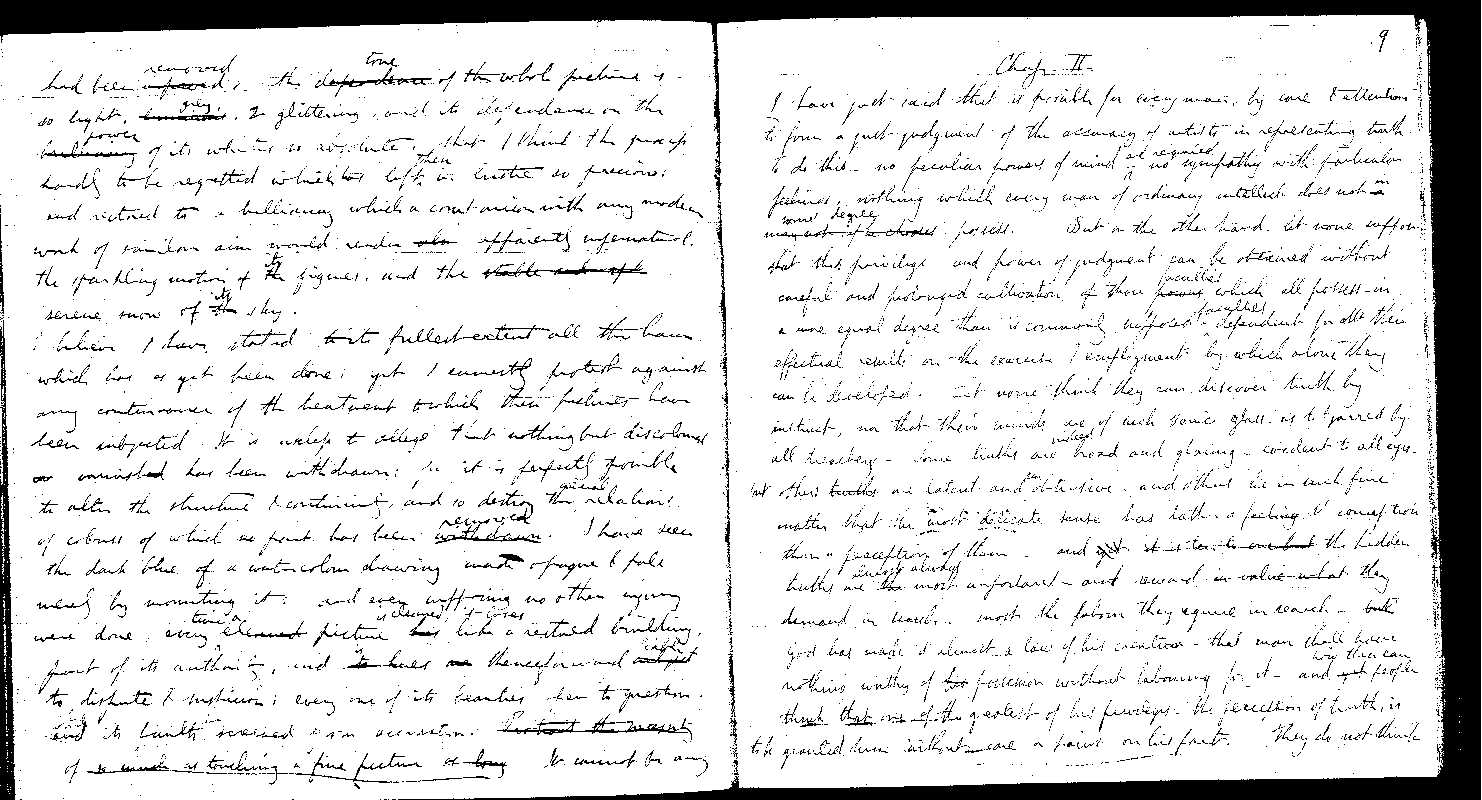 removed
had been injured; the tone dependence of the whole picture is
so light, grey & glittering, and its dependence on the
power
brilliancy of its whites so absolute, that I think the process
hardly to be regretted which has left then in lustre so precious;
and restored to a brilliancy which a comparison with any modern
work of similar aim would render also apparently supernatural,
the sparkling motion of the its figures, and the stable and soft
serene snow of the its sky.
I believe I have stated to its fullest extent all the harm
which has as yet been done; yet I earnestly protest against
any continuance of the treatment to which these pictures have
been subjected. It is useless to allege that nothing but discoloured
or varnish has been withdrawn; for it is perfectly possible
to alter the structure & continuity, and so destroy the aerial relations
of colours of which no part has been withdrawn removed. I have seen
the dark blue of a water colour drawing made opaque & pale
merely by mounting it; and even supposing no other injury
were done, every time a cleaned picture is cleaned, it loses has like a restored building,
part of its authority, and is thenceforward liable subject
to dispute & suspicion; every one of its beauties open to question.
and its faults screened from accusation. Protest the necessity
of so much as touching a fine picture so long It cannot be any
9
Chap. II.
I have just said that is possible for every man, by care & attention
to form a just judgment of the accuracy of artists in representing truth.
to do this no peculiar powers of mind are required no sympathy with particular
feelings, nothing which every man of ordinary intellect does not in
some degree
may not if he chooses possess. But on the other hand let none suppose
that this privilege and power of judgment can be obtained without
careful and prolonged cultivation of those powers faculties which all possess in
a more equal degree than is commonly supposed faculties dependent for all their
effectual results on the exercise & employment by which alone they
can be developed. Let none think they can discover truth by
instinct, nor that their minds are of such Venice glass as to be injured by
all treachery - some truths are indeed broad and glaring - evident to all eyes.
but others truths are latent and obtrusive - and others lie in such fine
matter that the most delicate sense has rather a feeling & conception
than a perception of them - and yet the hidden
truths are almost always the most important - and reward in value what they
demand in search - most the labour they require in search - but
God has made it almost a law of his creation - that man shall have
nothing worthy of his possession without labouring for it - and why then can yet people
think that one of the greatest of his privileges - the perception of truth, is
to be granted him without care or pains on his part. They do not think